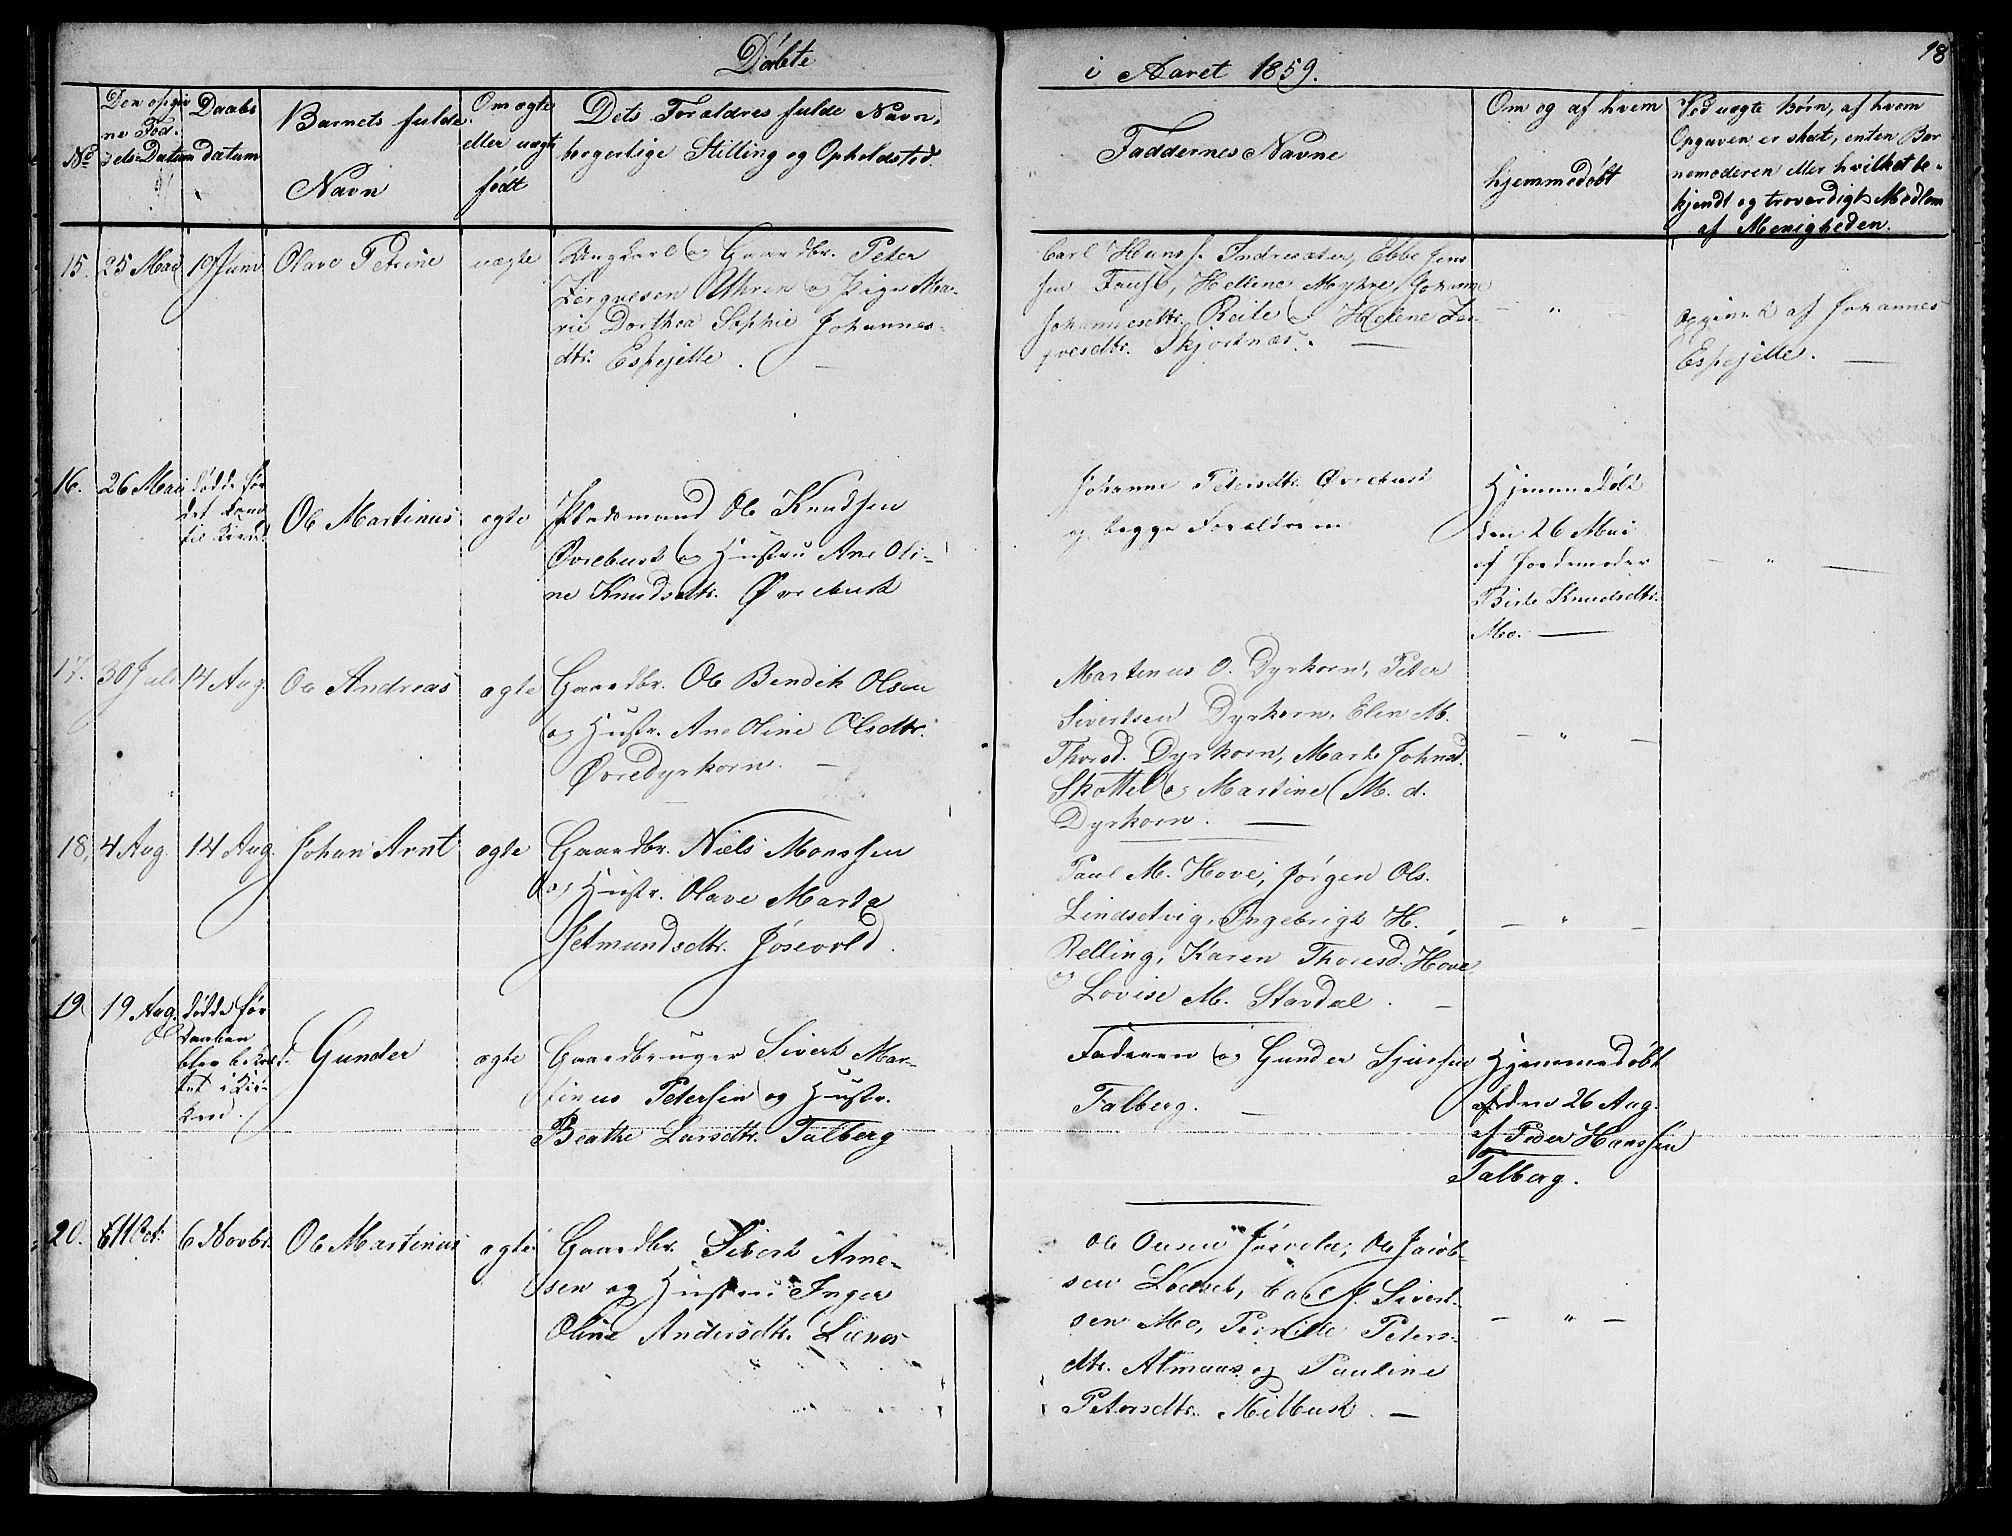 Døbte
i Aaret 1859.
18
No
Den opgiv
ne Fød-
sels-Datum
Daabs
datum
Barnets fulde
Navn
Om ægte
eller uægte
født
Dets Forældres fulde Navn,
borgerlige Stilling og Opholdsted.
Faddernes Navne
Om og af hvem
hjemmedøbt
Ved uægte Børn, af hvem
Opgaven er skeet, enten Bar
nemoderen eller hvilket be-
kjendt og troværdigt Medlem
af Menigheden.
15. 25 Mai 19 Juni Olave Petrine uægte
Ungkarl og Gaardbr. Peter
Uhren og Pige Ma-
rie Dorthea Sophie Johannes-
dtr. Espejelle. —
Carl Hanss. Indresæter, Ebbe Jens
sen Hellene Myhre, Johanne
Johannesdtr. Reite og Helene
Skjortnæs. —
— " —
Opgivet af Johannes
Espejelle. —
16. 26 Mai Døde før
det kom
til Kirke
Ole Martinus ægte
Pladsmand Ole Knudsen
Øvrebust og Hustru Ane Oli-
ne Knudsdtr. Øvrebust
Johanne Petersdtr. Øvrebust
og begge Forældrene
Hjemmedøbt
den 26 Mai
af Jordemoder
Birte Knudsdtr.
Mo. —
— " —
17. 30 Juli 14 Aug. Ole Andreas ægte
Gaardbr. Ole Bendik Olsen
og Hustr. Ane Oline Olsdtr.
Øvredyrkorn. —
Martinus O. Dyrkorn, Peter
Sivertsen Dyrkorn, Elen M.
Thorsd. Dyrkorn, Marte Johnsd.
Skottel og Martine M. d.
Dyrkorn. —
— " —
18, 4 Aug. 14 Aug. Johan Arnt ægte
Gaardbr. Niels Monssen
og Hustr. Olave Marta
Jetmundsdtr. Jøsevold.
Paul M. Hove, Jørgen Ols.
Lindsetvig, Ingebrigt H.
Relling, Karen Thoresd. Hove
og Lovise M. Stavdal. —
— " —
19. 19 Aug. døde før
Daaben
blev bekræf-
tet i Kir-
ken.
Gunder ægte
Gaardbruger Sivert Mar-
tinus Petersen og Hustr.
Beathe Larsdtr. Talberg
Faderen og Gunder Sjursen
Talberg. —
Hjemmedøbt
den 26 Aug.
af Peder Hanssen
Talberg.
20. 11 Oct. 6 Novbr. Ole Martinus ægte
Gaardbr. Sivert Arne-
sen og Hustru Inger
Oline Andersdtr. Lienes
Ole Ole Jacob-
sen Carl J. Sivert-
sen Mo, Pernille Peters-
dtr. Almaas og Pauline
Petersdtr. Melbust. —
— " —